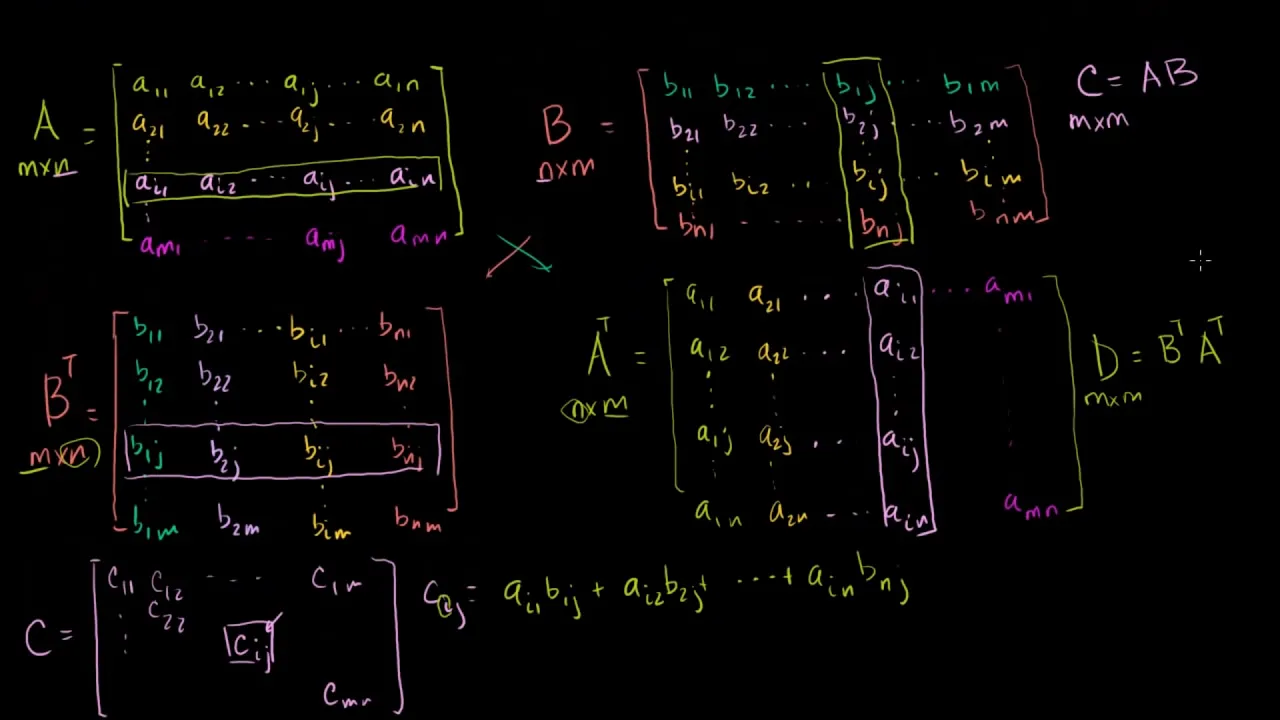 A = a₁₁ a₁₂ ··· a₁ⱼ ··· a₁ₙ
m×n
a₂₁ a₂₂ ··· a₂ⱼ ··· a₂ₙ
aᵢ₁ aᵢ₂ ··· aᵢⱼ ··· aᵢₙ
aₘ₁ ···· aₘⱼ aₘₙ
B = b₁₁ b₁₂ ··· b₁ⱼ ··· b₁ₘ
n×m
b₂₁ b₂₂ ··· b₂ⱼ ··· b₂ₘ
bᵢ₁ bᵢ₂ ·· bᵢⱼ ··· bᵢₘ
bₙ₁ ····· bₙⱼ bₙₘ
C = AB
m×m
Bᵀ = b₁₁ b₂₁ ··· bᵢ₁ ··· bₙ₁
m×n
b₁₂ b₂₂ bᵢ₂ bₙ₂
b₁ⱼ b₂ⱼ bᵢⱼ bₙⱼ
b₁ₘ b₂ₘ bᵢₘ bₙₘ
Aᵀ = a₁₁ a₂₁ ·· aᵢ₁ ··· aₘ₁
n×m
a₁₂ a₂₂ ··· aᵢ₂
a₁ⱼ a₂ⱼ ·· aᵢⱼ
a₁ₙ a₂ₙ ··· aᵢₙ aₘₙ
D = BᵀAᵀ
m×m
C = c₁₁ c₁₂ ···· c₁ₘ
c₂₂
cᵢⱼ
cₘₙ
cᵢⱼ = aᵢ₁b₁ⱼ + aᵢ₂b₂ⱼ + ··· + aᵢₙbₙⱼ